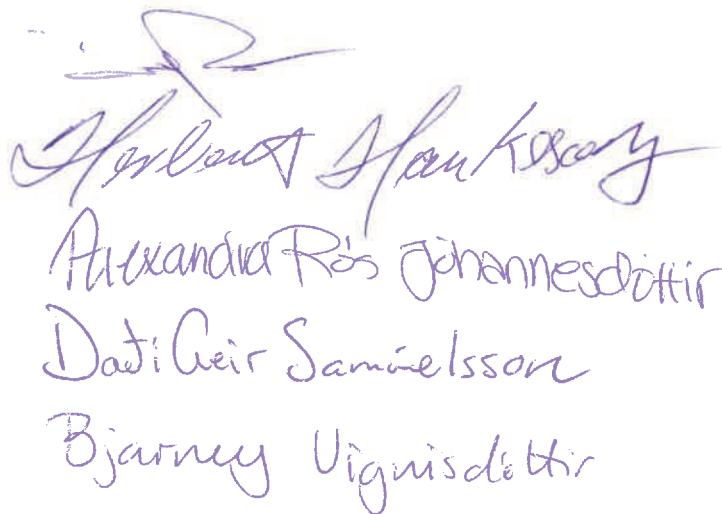 Herbert Hauksson
Alexandra Rós Jóhannesdóttir
Daði Geir Samúelsson
Bjarney Vignisdóttir